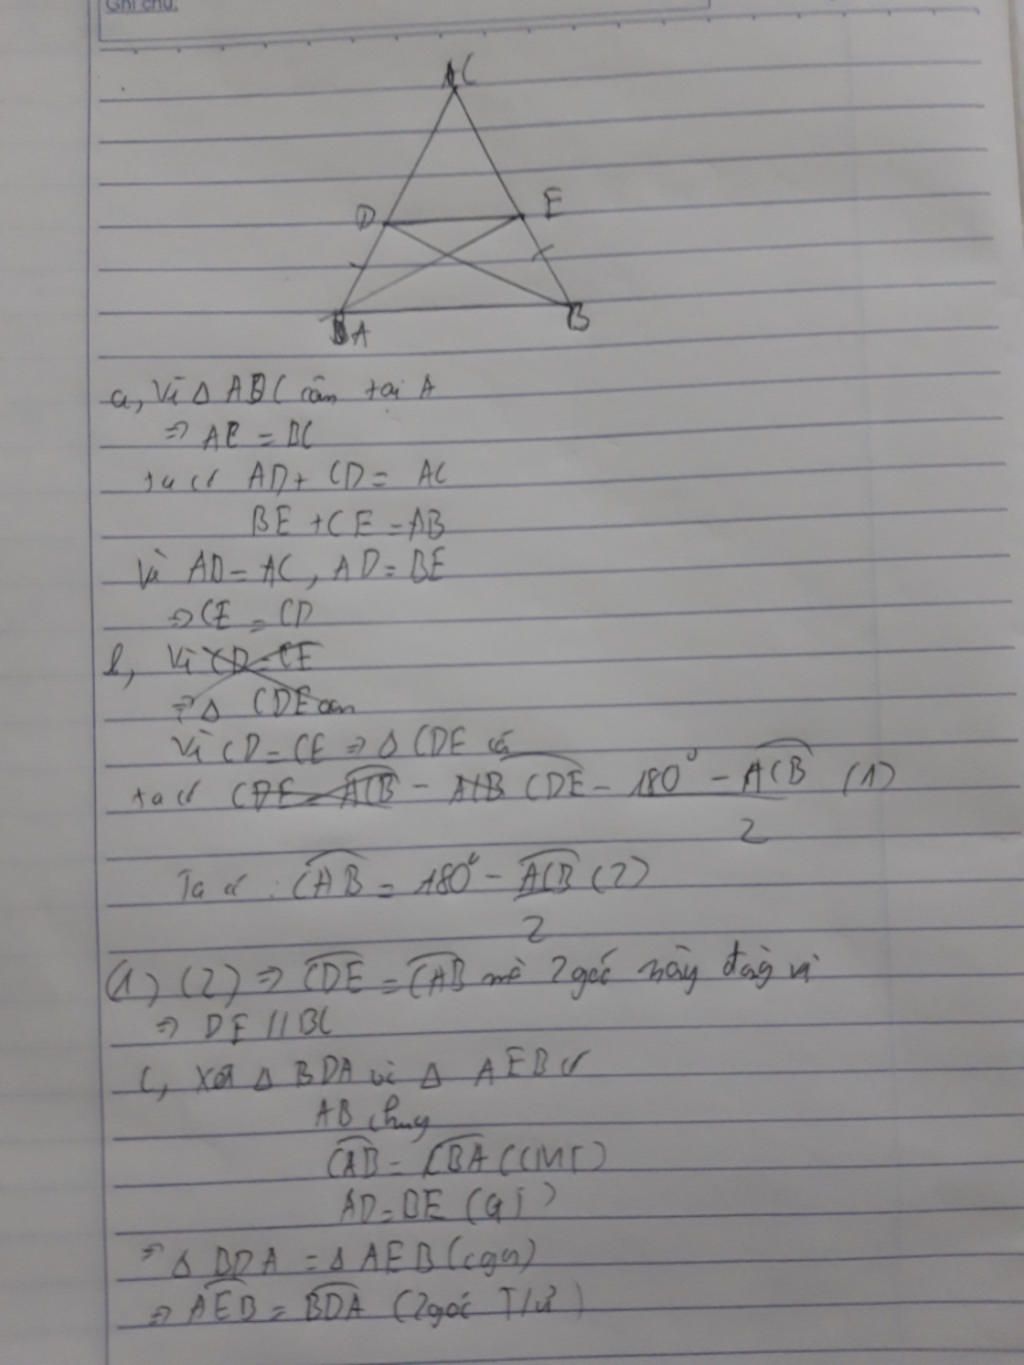 Ghi chú:
C
D E
A B
a, Vì Δ ABC cân tại A
⇒ AC = BC
ta có AD + CD = AC
BE + CE = AB
Vì AD = AC, AD = BE
⇒ CE = CD
b, Vì CD = CE
⇒ Δ CDE cân
Vì CD = CE ⇒ Δ CDE câ
ta có CDE = ACB - ACB CDE = 180° - ACB (1)
2
Ta có : CAB = 180° - ACB (2)
2
(1) (2) ⇒ CDE = CAB mà 2 góc này đồng vị
⇒ DE // BC
c, Xét Δ BDA và Δ AEB có
AB chung
CAB = CBA (CMT)
AD = BE (GT)
⇒ Δ BDA = Δ AEB (cgc)
⇒ AEB = BDA (2 góc T/ứ)